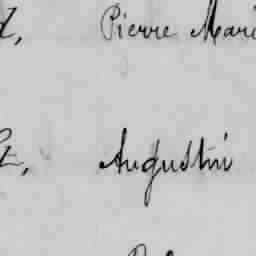 Pierre Mari
Augustin